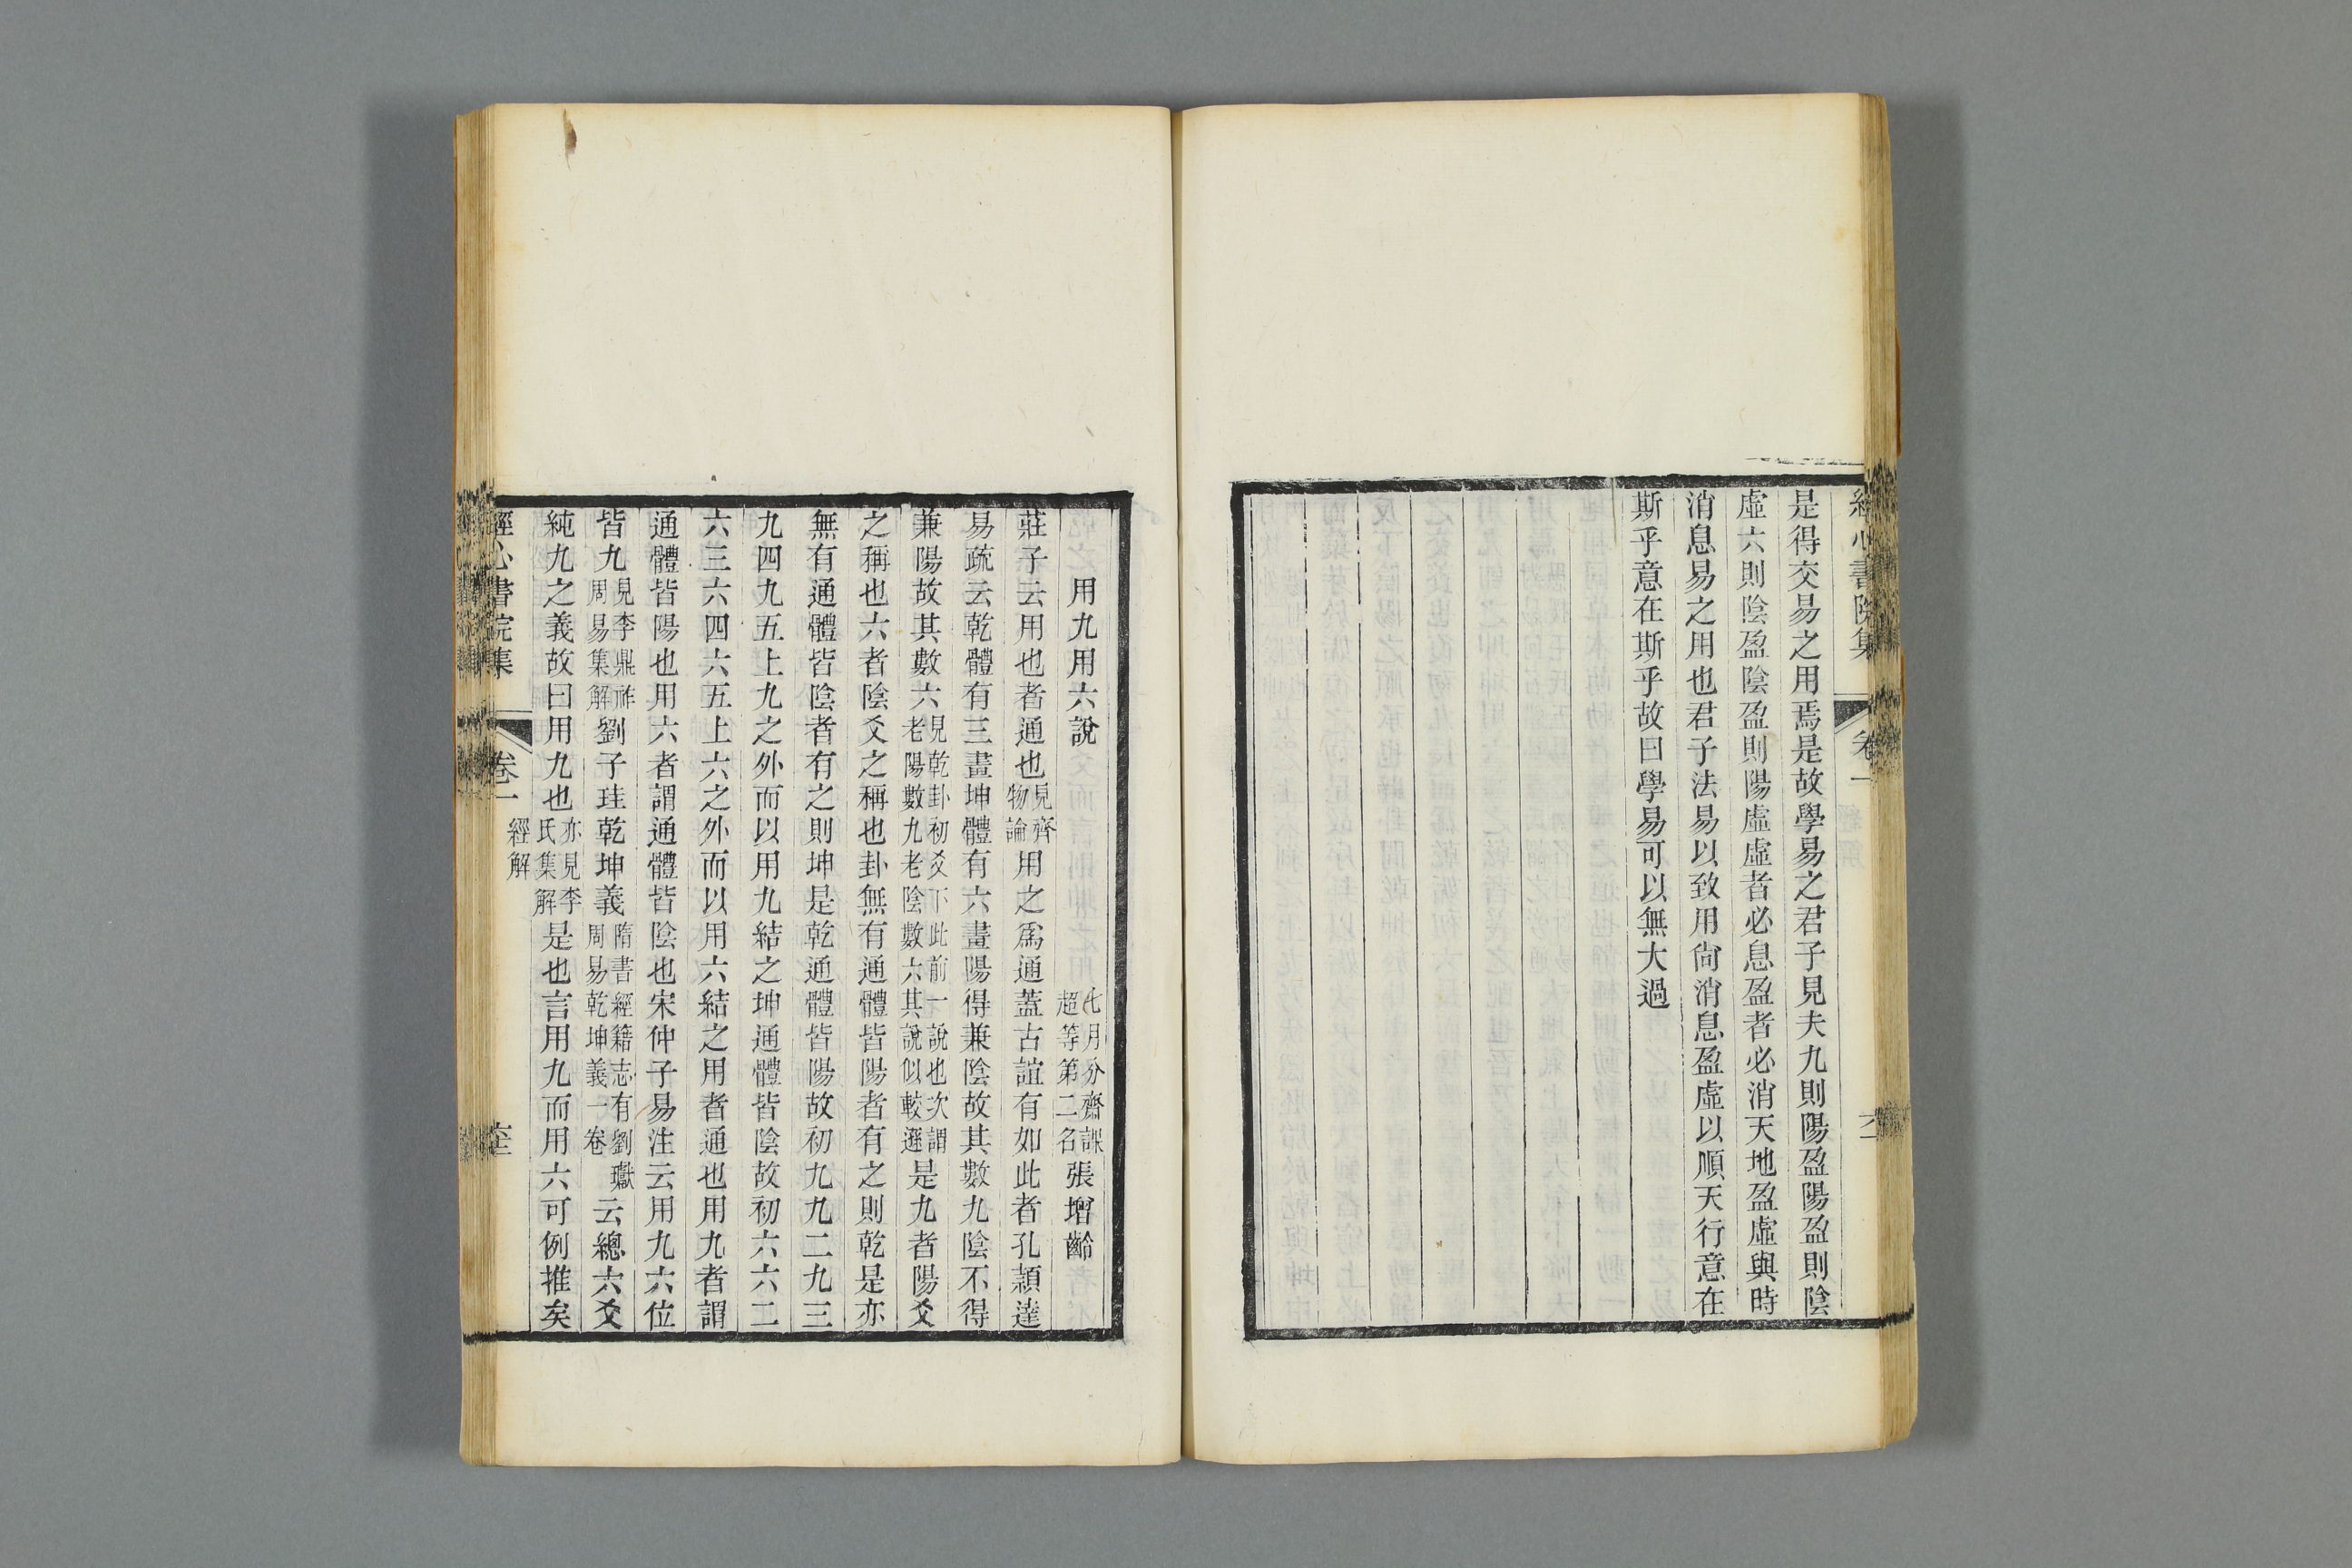 經心書院集 卷一
是得交易之用焉是故學易之君子見夫九則陽盈陽盈則陰
虛六則陰盈陰盈則陽虛虛者必息盈者必消天地盈虛與時
消息易之用也君子法易以致用尙消息盈虛以順天行意在
斯乎意在斯乎故曰學易可以無大過
用九用六說 七月分齋課超等第二名 張增齡
莊子云用也者通也見齊物論用之爲通蓋古誼有如此者孔頴達
易疏云乾體有三畫坤體有六畫陽得兼陰故其數九陰不得
兼陽故其數六見乾卦初爻下此前一說也次謂老陽數九老陰數六其說似較遜是九者陽爻
之稱也六者陰爻之稱也卦無有通體皆陽者有之則乾是亦
無有通體皆陰者有之則坤是乾通體皆陽故初九九二九三
九四九五上九之外而以用九結之坤通體皆陰故初六六二
六三六四六五上六之外而以用六結之用者通也用九者謂
通體皆陽也用六者謂通體皆陰也宋仲子易注云用九六位
皆九見李鼎祚周易集解劉子珪乾坤義隋書經籍志有劉瓛周易乾坤義一卷云總六爻
純九之義故曰用九也亦見李氏集解是也言用九而用六可例推矣
經心書院集 卷一 經解